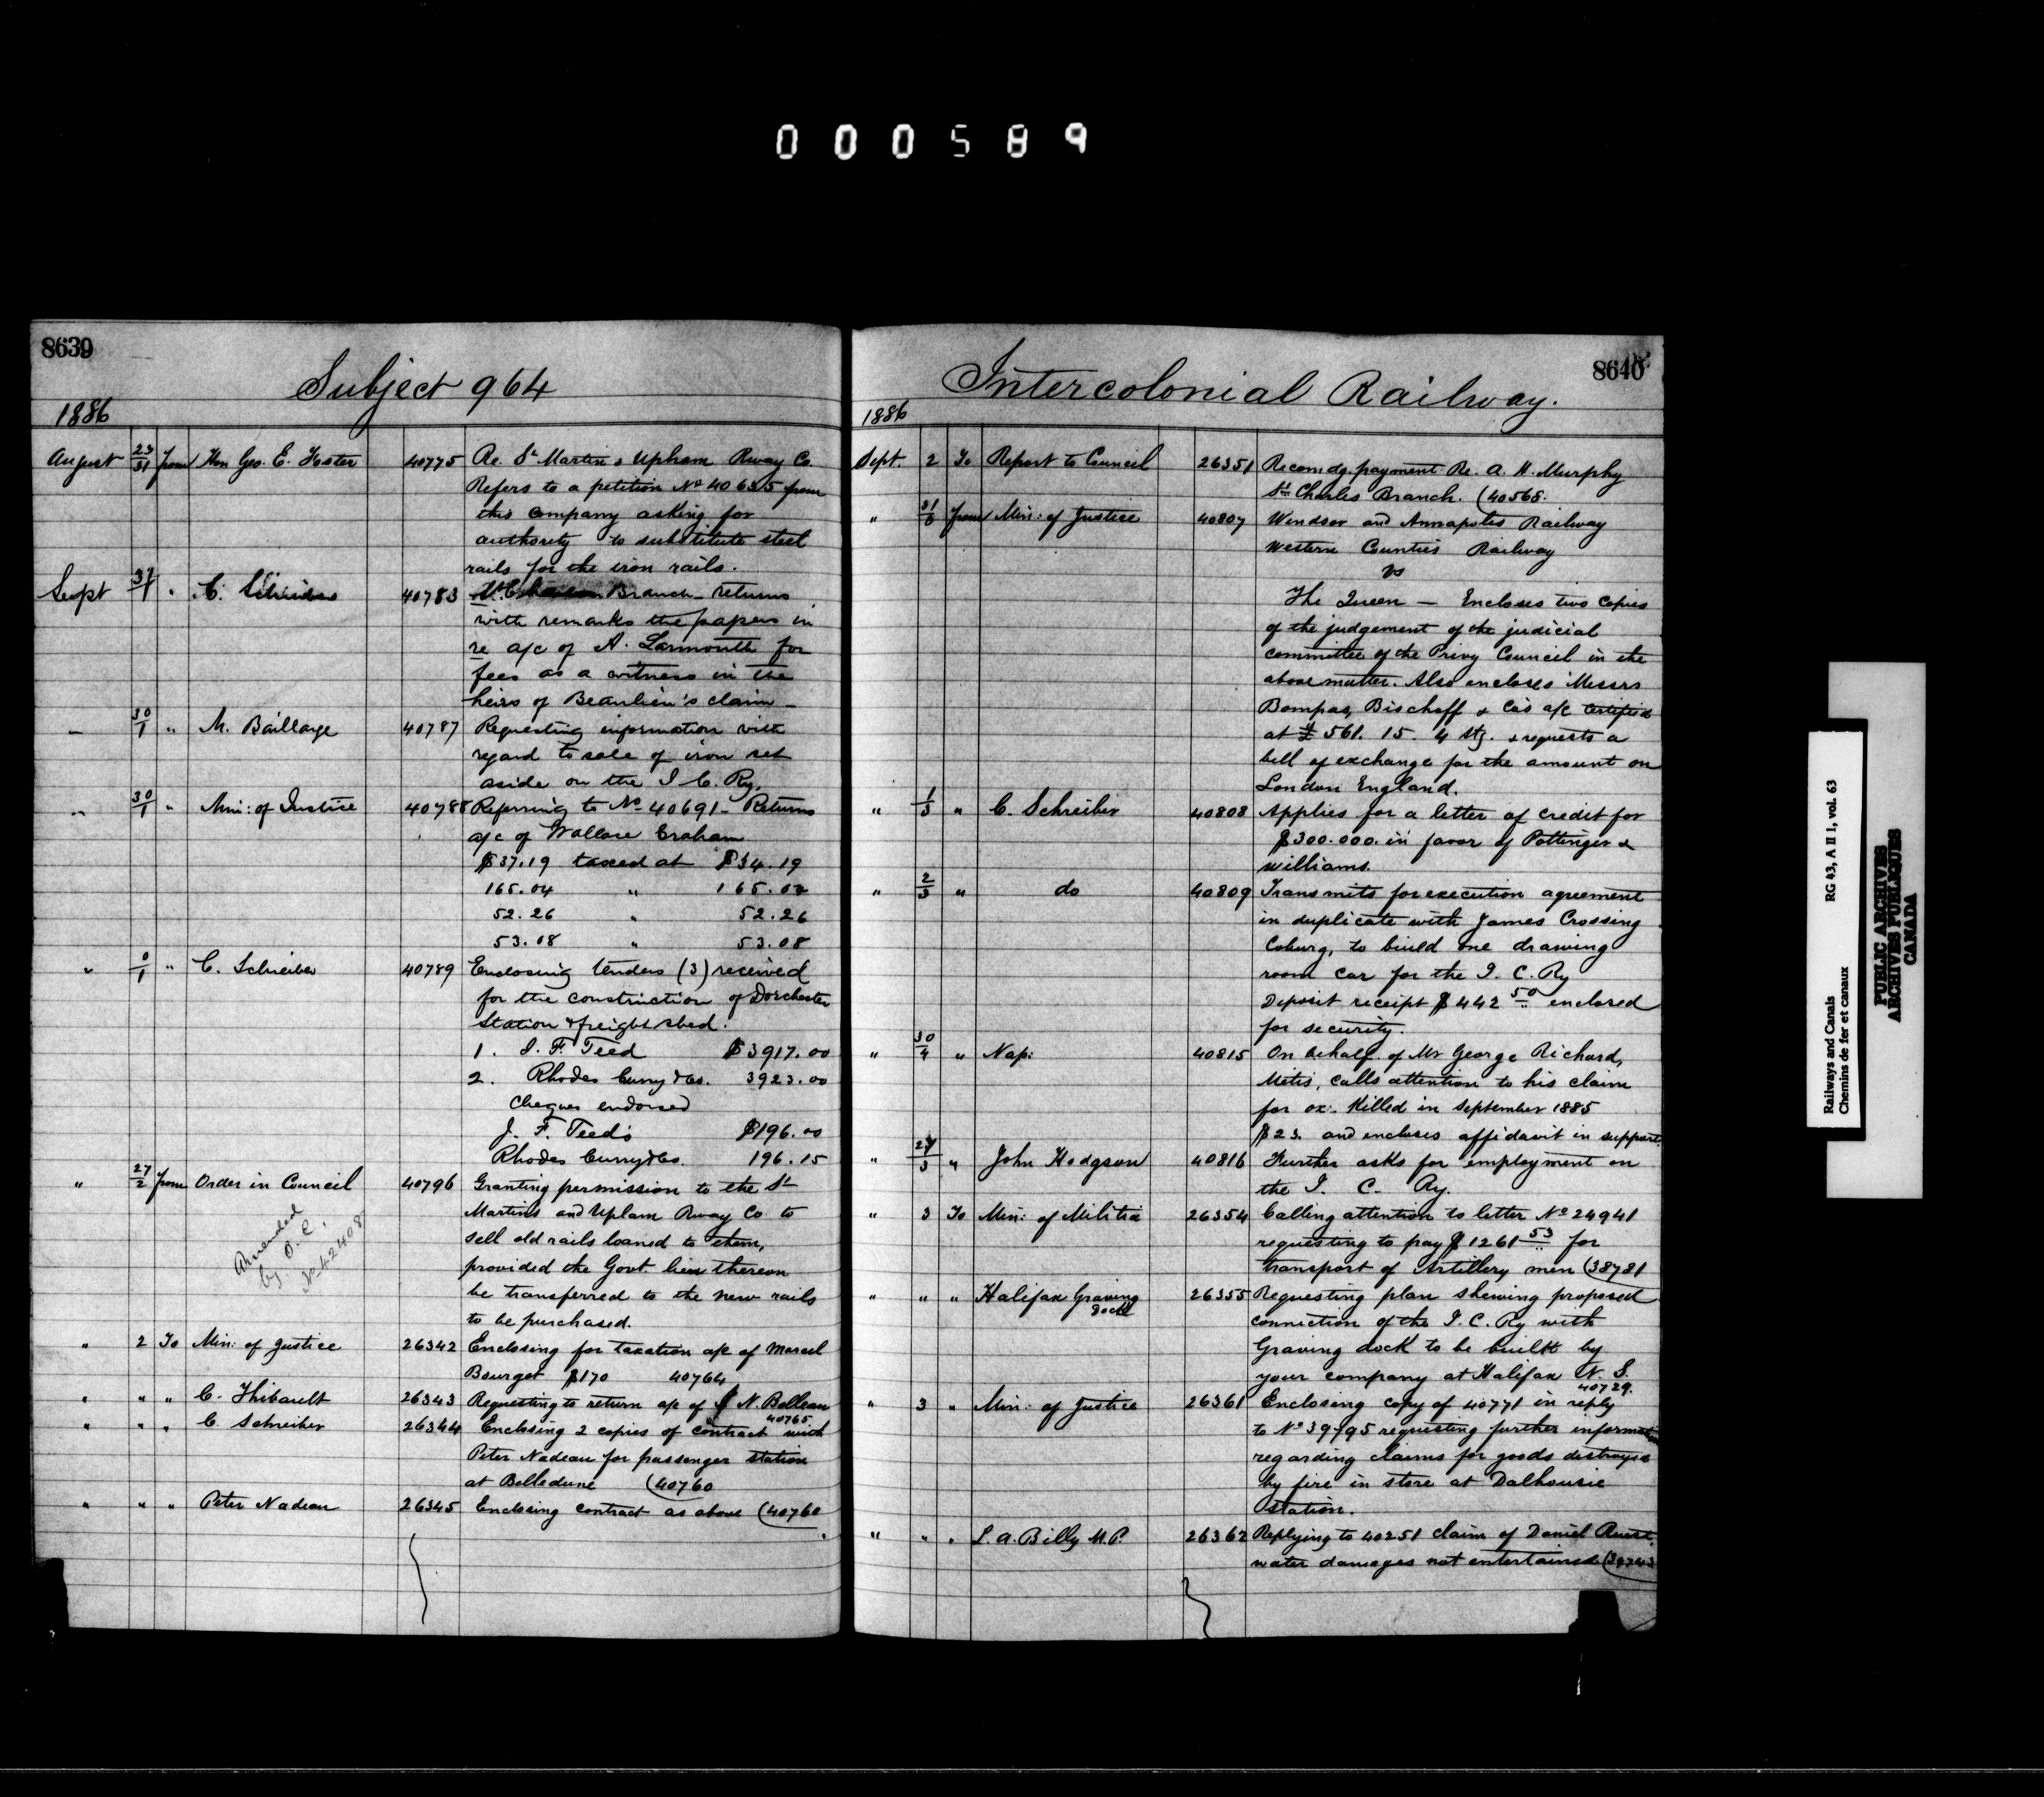 000589
8639
Subject 964
1886
August 23/31 from Hon Geo. E. Foster 40775 Re. St Martins Upham Rway Co.
Refers to a petition No 40635 from
this Company asking for
authority to substitute steel
rails for the iron rails.
Sept " C. Schreiber 40783 Branch returns
with remarks the papers in
re a/c of A. Larmonth for
fees as a witness in the
heirs of Beaulieu's claim
" 30/1 " M. Baillarge 40787 Requesting information with
regard to sale of iron set
aside on the I. C. Ry.
" 30/1 " Min: of Justice 40788 Referring to No 40691 - Returns
a/c of Wallace Graham
$37.19 taxed at $34.19
165.04 " 165.04
52.26 " 52.26
53.08 " 53.08
" 0/1 " C. Schreiber 40789 Enclosing tenders (3) received
for the construction of Dorchester
Station & freight shed.
1. J. F. Teed $3917.00
2. Rhodes Curry & Co. 3923.00
Cheques endorsed
J. F. Teed's $196.00
Rhodes Curry & Co. 196.15
" 27/2 from Order in Council 40796 Granting permission to the St
Martins and Upham Rway Co. to
sell old rails loaned to them,
provided the Govt. lien thereon
be transferred to the new rails
to be purchased.
Amended
by O.C.
No 42408
" 2 To Min: of Justice 26342 Enclosing for taxation a/c of Marcel
Bourget $170 40764
" " " C. Thibault 26343 Requesting to return a/c of N. Belleau
40765
" " " C. Schreiber 26344 Enclosing 2 copies of contract with
Peter Nadeau for passenger station
at Belledune (40760
" " " Peter Nadeau 26345 Enclosing contract as above (40760
8640
Intercolonial Railway.
1886
Sept. 2 To Report to Council 26351 Recomdg. payment Re. A. H. Murphy
St Charles Branch. (40568.
" from Min: of Justice 40807 Windsor and Annapolis Railway
Western Counties Railway
vs
The Queen — Encloses two copies
of the judgement of the judicial
committee of the Privy Council in the
above matter. Also encloses Messrs
Bompas, Bischoff & Co's a/c certified
at £561. 15. 4 stg. & requests a
bill of exchange for the amount on
London England.
" 1/3 " C. Schreiber 40808 Applies for a letter of credit for
$300.000. in favor of Pottinger &
Williams.
" 2/3 " do 40809 Transmits for execution agreement
in duplicate with James Crossing
Coburg, to build one drawing
room car for the I. C. Ry
Deposit receipt $442 50 enclosed
for security.
" 30/4 " Nap: 40815 On behalf of Mr George Richard,
Metis, calls attention to his claim
for ox: killed in September 1885
$23. and encloses affidavit in support.
" 27/3 " John Hodgson 40816 Further asks for employment on
the I. C. Ry.
" 3 To Min: of Militia 26354 Calling attention to letter No 24941
requesting to pay $1261 53 for
transport of Artillery men (38781
" " " Halifax Graving
Dock 26355 Requesting plan shewing proposed
connection of the I. C. Ry with
Graving dock to be built by
your company at Halifax N. S.
40729.
" 3 " Min: of Justice 26361 Enclosing copy of 40771 in reply
to No 39795 requesting further information
regarding claims for goods destroyed
by fire in store at Dalhousie
Station.
" " " L. A. Billy M.P. 26362 Replying to 40251 claim of Daniel
water damages not entertained
Railways and Canals RG 43, A II 1, vol. 63
Chemins de fer et canaux
PUBLIC ARCHIVES
ARCHIVES PUBLIQUES
CANADA